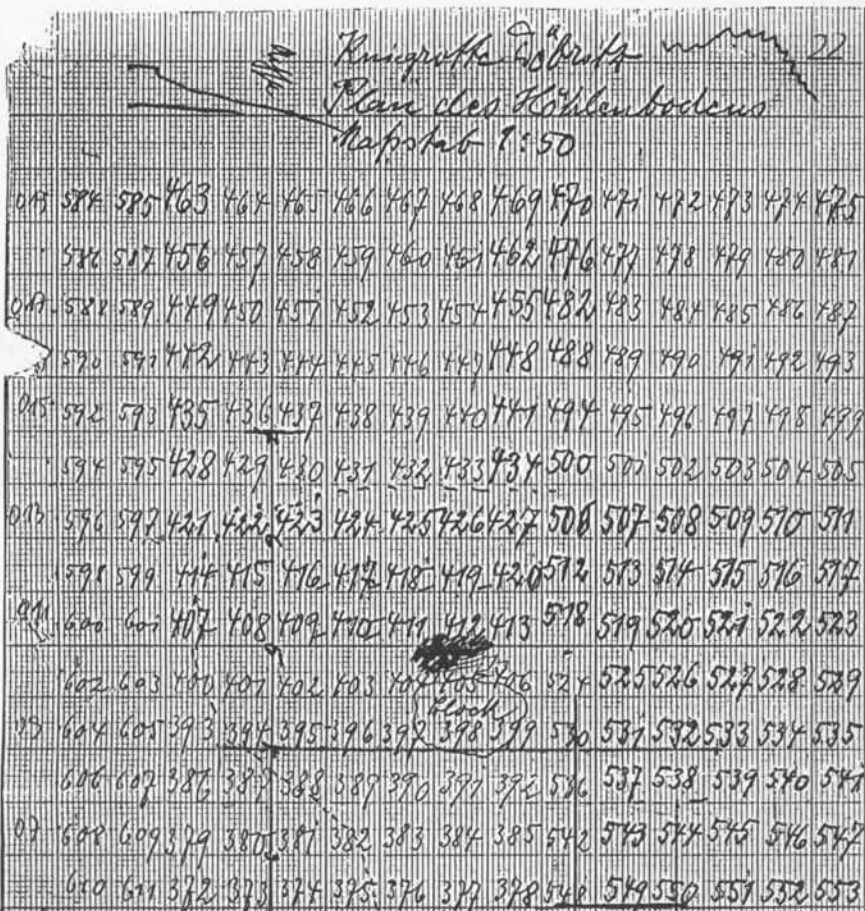 22
Plan des Höhlenbodens
Maßstab 1:50
584 585 463 464 465 466 467 468 469 470 471 472 473 474 475
586 587 456 457 458 459 460 461 462 476 477 478 479 480 481
588 589 449 450 451 452 453 454 455 482 483 484 485 486 487
590 591 442 443 444 445 446 447 448 488 489 490 491 492 493
015 592 593 435 436 437 438 439 440 441 494 495 496 497 498 499
594 595 428 429 430 431 432 433 434 500 501 502 503 504 505
013 596 597 421 422 423 424 425 426 427 506 507 508 509 510 511
598 599 414 415 416 417 418 419 420 512 513 514 515 516 517
011 600 601 407 408 409 410 411 412 413 518 519 520 521 522 523
602 603 400 401 402 403 404 405 406 524 525 526 527 528 529
Block
09 604 605 393 394 395 396 397 398 399 530 531 532 533 534 535
606 607 386 387 388 389 390 391 392 536 537 538 539 540 541
07 608 609 379 380 381 382 383 384 385 542 543 544 545 546 547
610 611 372 373 374 375 376 377 378 548 549 550 551 552 553